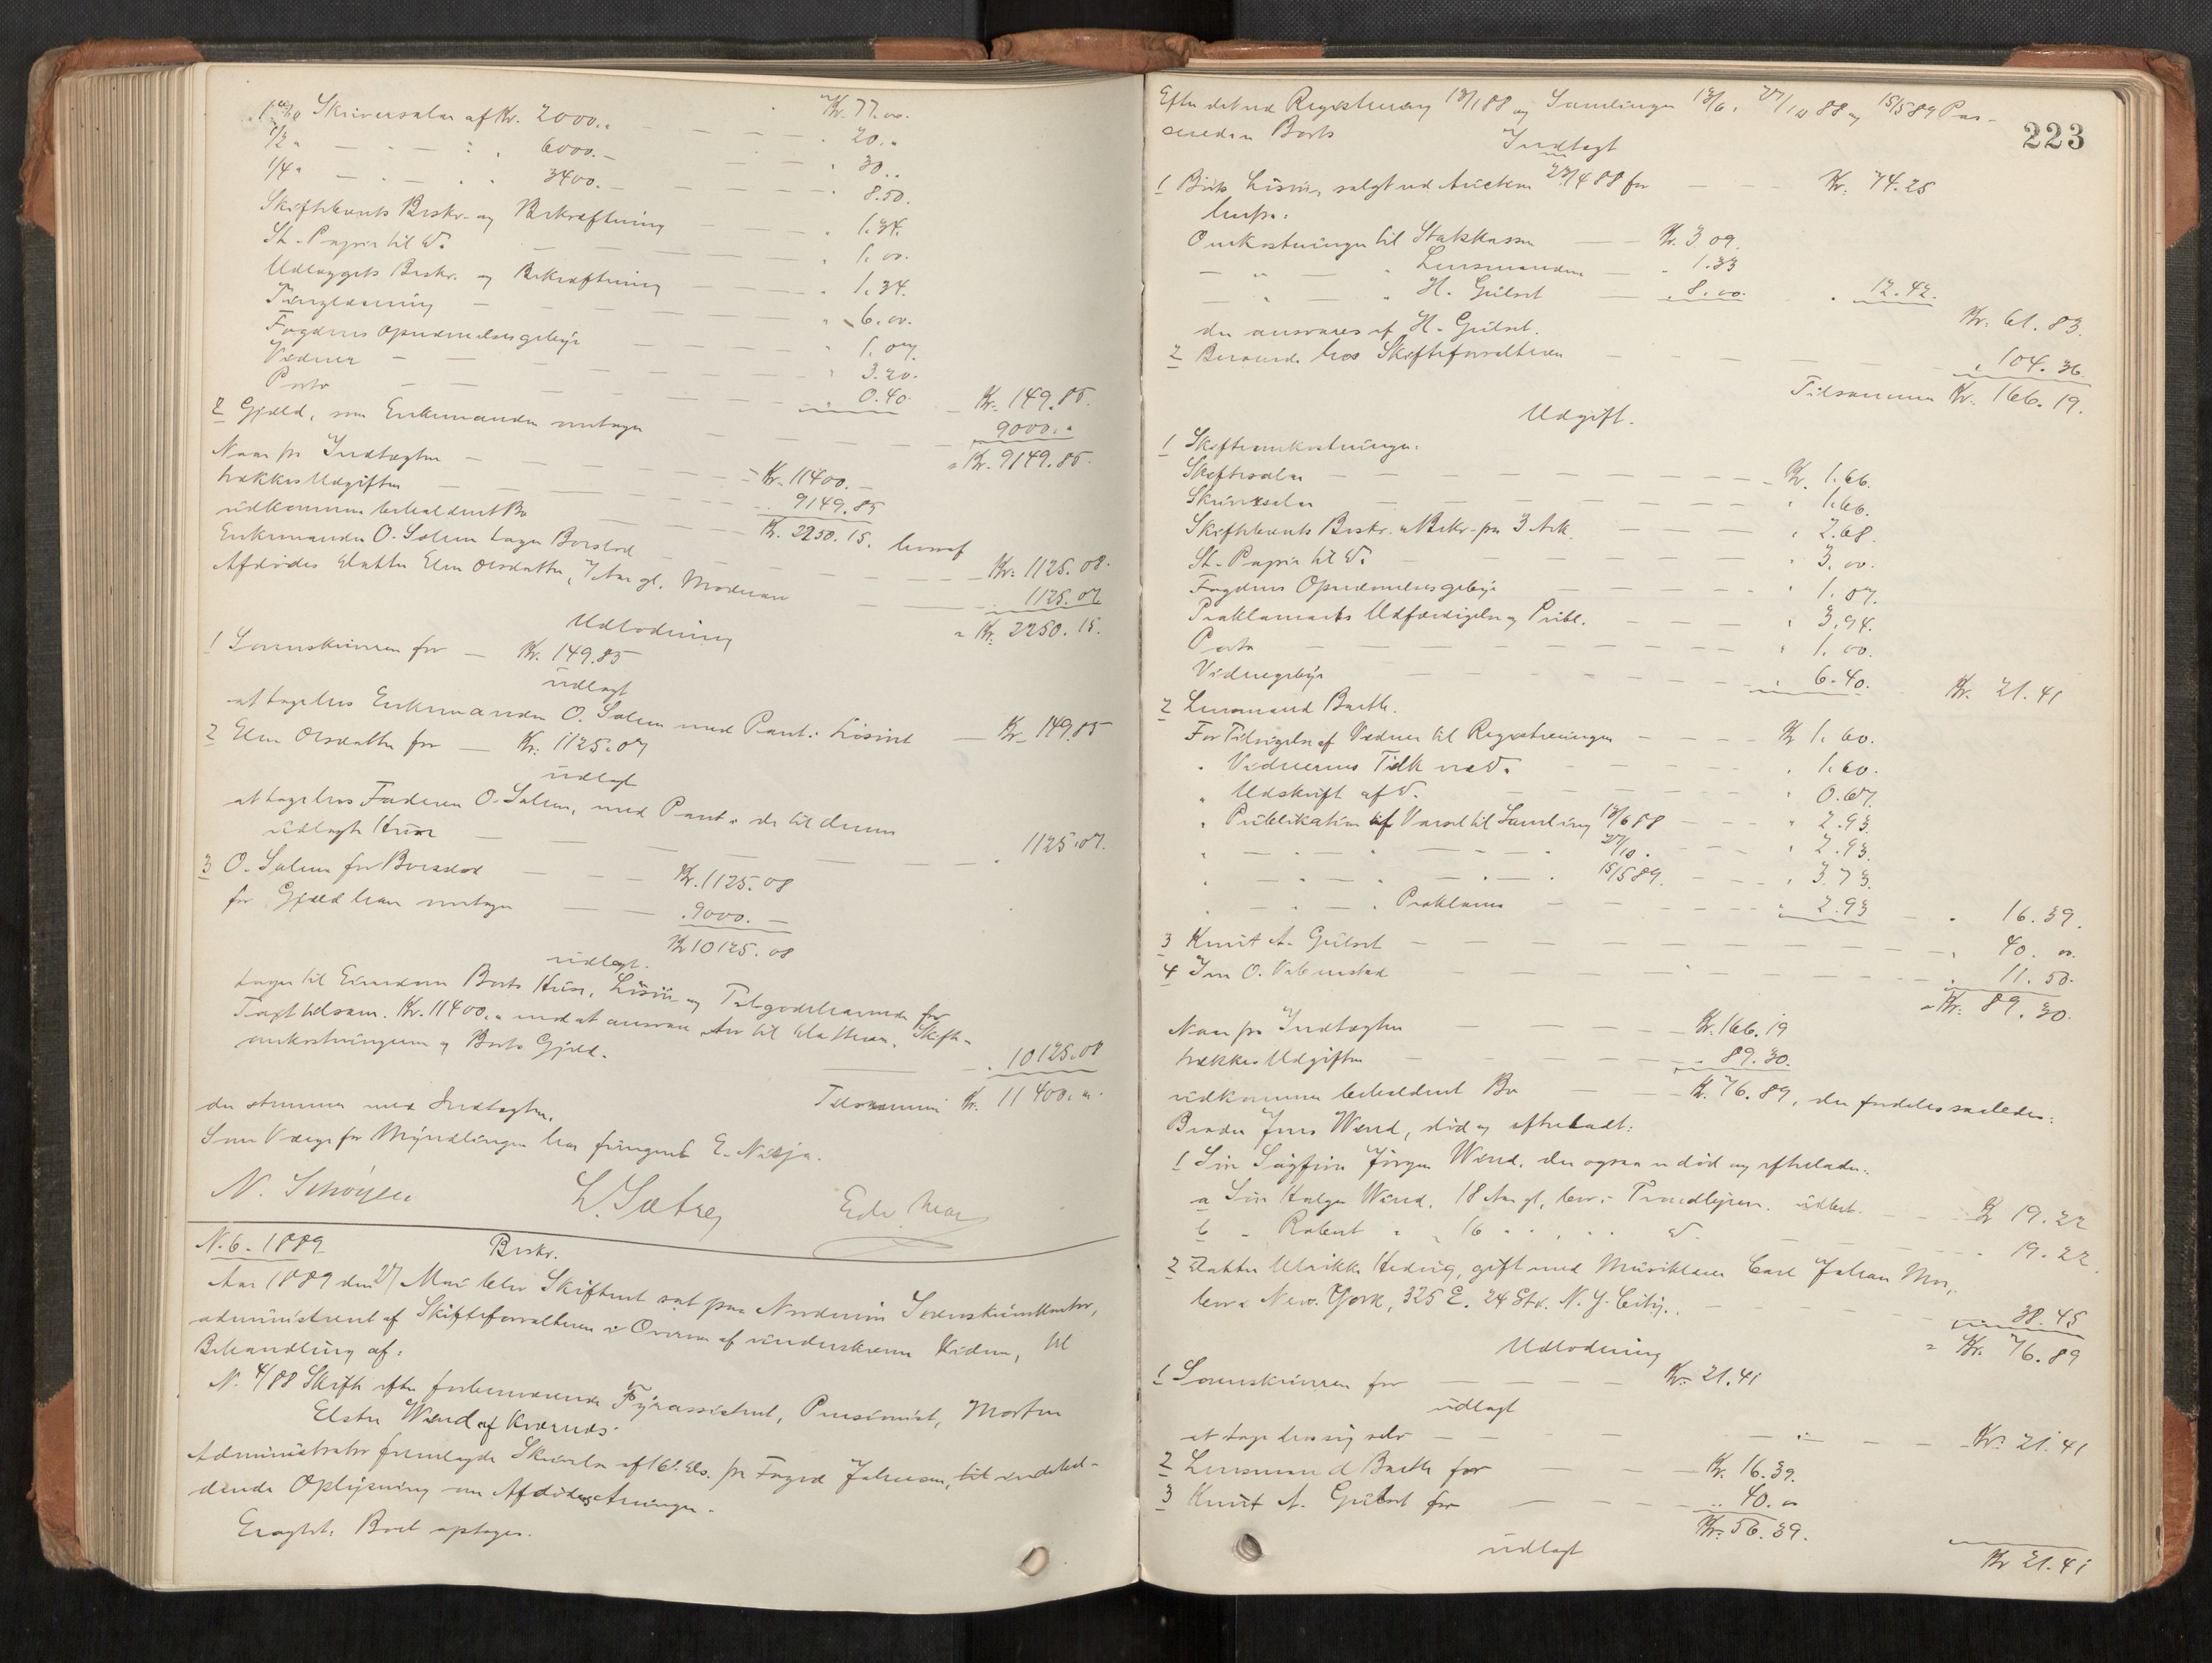 Kr. 77.00.
1 % Skriversalær af Kr. 2000.. 20..
1/2 " 6000.— 30..
1/4 " 3400.— 8.50.
Skiftebrevets Beskr. og Bekræftning 1.34.
St. Papir til do. 1.00.
Udlæggets Beskr. og Bekræftning 1.34.
Tinglæsning 6.00.
Fogdens Opnævnelsesgebyr 1.07.
Vidner 3.20.
Porto 0.40. Kr. 149.85.
2 Gjæld, som Enkemanden modtager 9000..
= Kr. 9149.85.
Naar fra Indtægten Kr. 11400.—
trækkes Udgiften 9149.85
udkommer beholdent Bo Kr. 2250.15. hvoraf
Enkemanden O. Solem tager Boeslod Kr. 1125.08.
Afdødes Datter Elen Olsdatter, 7 Aar gl. Mødrenarv 1125.07
= Kr. 2250.15.
Udlodning
1 Sorenskriveren for — Kr. 149.85
udlagt
at tage hos Enkemanden O. Solem med Pant i Løsøret Kr. 149.85
2 Elen Olsdatter for — Kr. 1125.07
udlagt
at tage hos Faderen O. Solem, med Pant i de til denne
udlagte Huse 1125.07.
3 O. Solem for Boeslod Kr. 1125.08
for Gjæld han modtager 9000.—
Kr 10125.08
udlagt.
tager til Eiendom Boets Huse, Løsøre og Tilgodehavende for
Taxt tilsam. Kr. 11400.. mod at ansvare Arv til Datteren, Skifte-
omkostningerne og Boets Gjæld. 10125.08
Tilsammen Kr. 11400...
der stemmer med Indtægten.
Som Værge for Myndlingen har fungeret E. Nesja.
N. Schøyen L. Sætrey
N. 6. 1889 Beskr.
Aar 1889 den 27 Mai blev Skifteret sat paa Nordmøre Sorenskriverkontor,
administreret af Skifteforvalteren i Overvær af underskrevne Vidner, til
Behandling af:
N. 4/88 Skifte efter forhenværende Fyrassistent, Pensionist, Morten
Elster Wend af Kværnes.
Administrator fremlagde Skrivelse af 16. ds. fra Foged Johnsen, til indehol-
dende Oplysning om Afdødes Arvinger.
Eragtet: Boet optages.
223
Efter det ved Registrering 13/1 88 og Samlinger 13/6, 27/10 88 og 15/5 89 Pas-
serede er Boets
Indtægt
1 Boets Løsøre, solgt ved Auction 27/4 88 for Kr. 74.25
herfra:
Omkostninger til Statskassen Kr. 3.09.
" Lensmanden " 1.33
" H. Gülset " 8.00. " 12.42.
der ansvares af H. Gülset. Kr. 61.83.
2 Beroende hos Skifteforvalteren " 104.36.
Tilsammen Kr. 166.19.
Udgift.
1 Skifteomkostninger:
Skiftesalær Kr. 1.66.
Skriversalær " 1.66.
Skiftebrevets Beskr. & Bekr. paa 3 Ark " 2.68.
St. Papir til do. " 3.00.
Fogdens Opnævnelsesgebyr " 1.07.
Proklamaets Udfærdigelse og Publ. " 3.94.
Porto " 1.00.
Vidnegebyr " 6.40. Kr. 21.41
2 Lensmand Barth.
For Tilsigelse af Vidner til Registreringen Kr 1.60.
" Vidnernes Tilh ved do. " 1.60.
" Udskrift af do. " 0.67.
" Publikation af Varsel til Samling 13/6 88 " 2.93.
" 27/10 " " 2.93.
" 15/5 89. " 3.73.
" Proklama " 2.93 " 16.39.
3 Knut A. Gülset " 40.00.
4 Iver O. " 11.50.
= Kr. 89.30.
Naar fra Indtægten Kr. 166.19
trækkes Udgiften 89.30.
udkommer beholdent Bo Kr. 76.89, der fordeles saaledes:
Broder Jens Wend, død og efterladt:
1 Søn Sigfrin Jørgen Wend, der ogsaa er død og efterlader:
a Søn Holger Wend, 18 Aar gl, bor i Trondhjem. udlært. Kr 19.22
b " Robert " " 16 " " " " do. 19.22
2 Datter Ulrikke Hedvig, gift med Musiklærer Carl Johan Mor,
bor i New-York, 325 E. 24 Str. N.Y. City. 38.45
= Kr. 76.89
Udlodning
1 Sorenskriveren for Kr. 21.41
udlagt
at tage hos sig selv Kr. 21.41
2 Lensmand Barth for Kr. 16.39.
3 Knut A. Gülset for " 40.00
Kr. 56.39.
udlagt
Kr 21.41